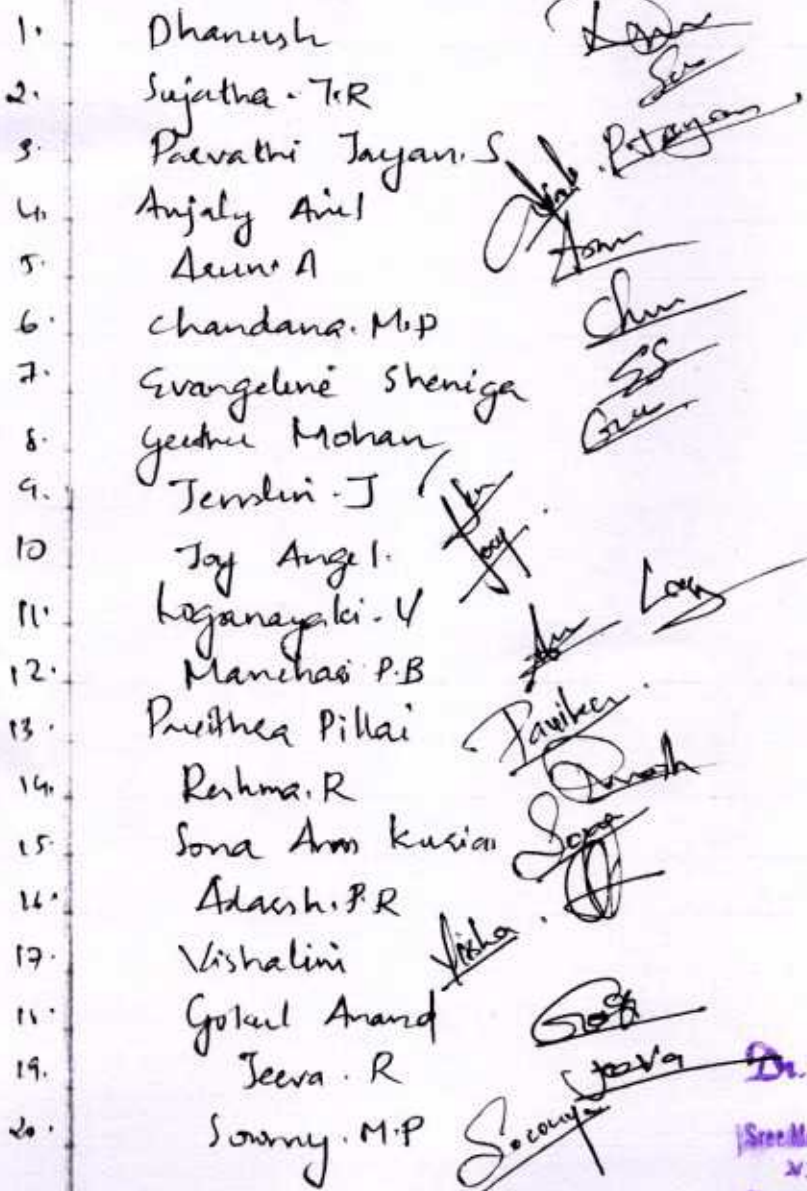 1. Dhanush
2. Sujatha. T.R
3. Parvathi Jayan. S P. Jayan
4. Anjaly Anil
5. Arun. A Arun
6. Chandana. M.P
7. Evangeline Sheniga SS
8. Geethu Mohan
9. Jenslin. J Jen
10 Joy Angel. Joy.
11. Loganayaki. V Log
12. Manchas P.B
13. Preithea Pillai
14. Reshma. R
15. Sona Ann Kurian Sona
16. Adarsh. P.R
17. Vishalini Visha.
18. Gokul Anand
19. Jeeva. R Jeeva
20. Sowmy. M.P Sowmya
Dr.
Sree